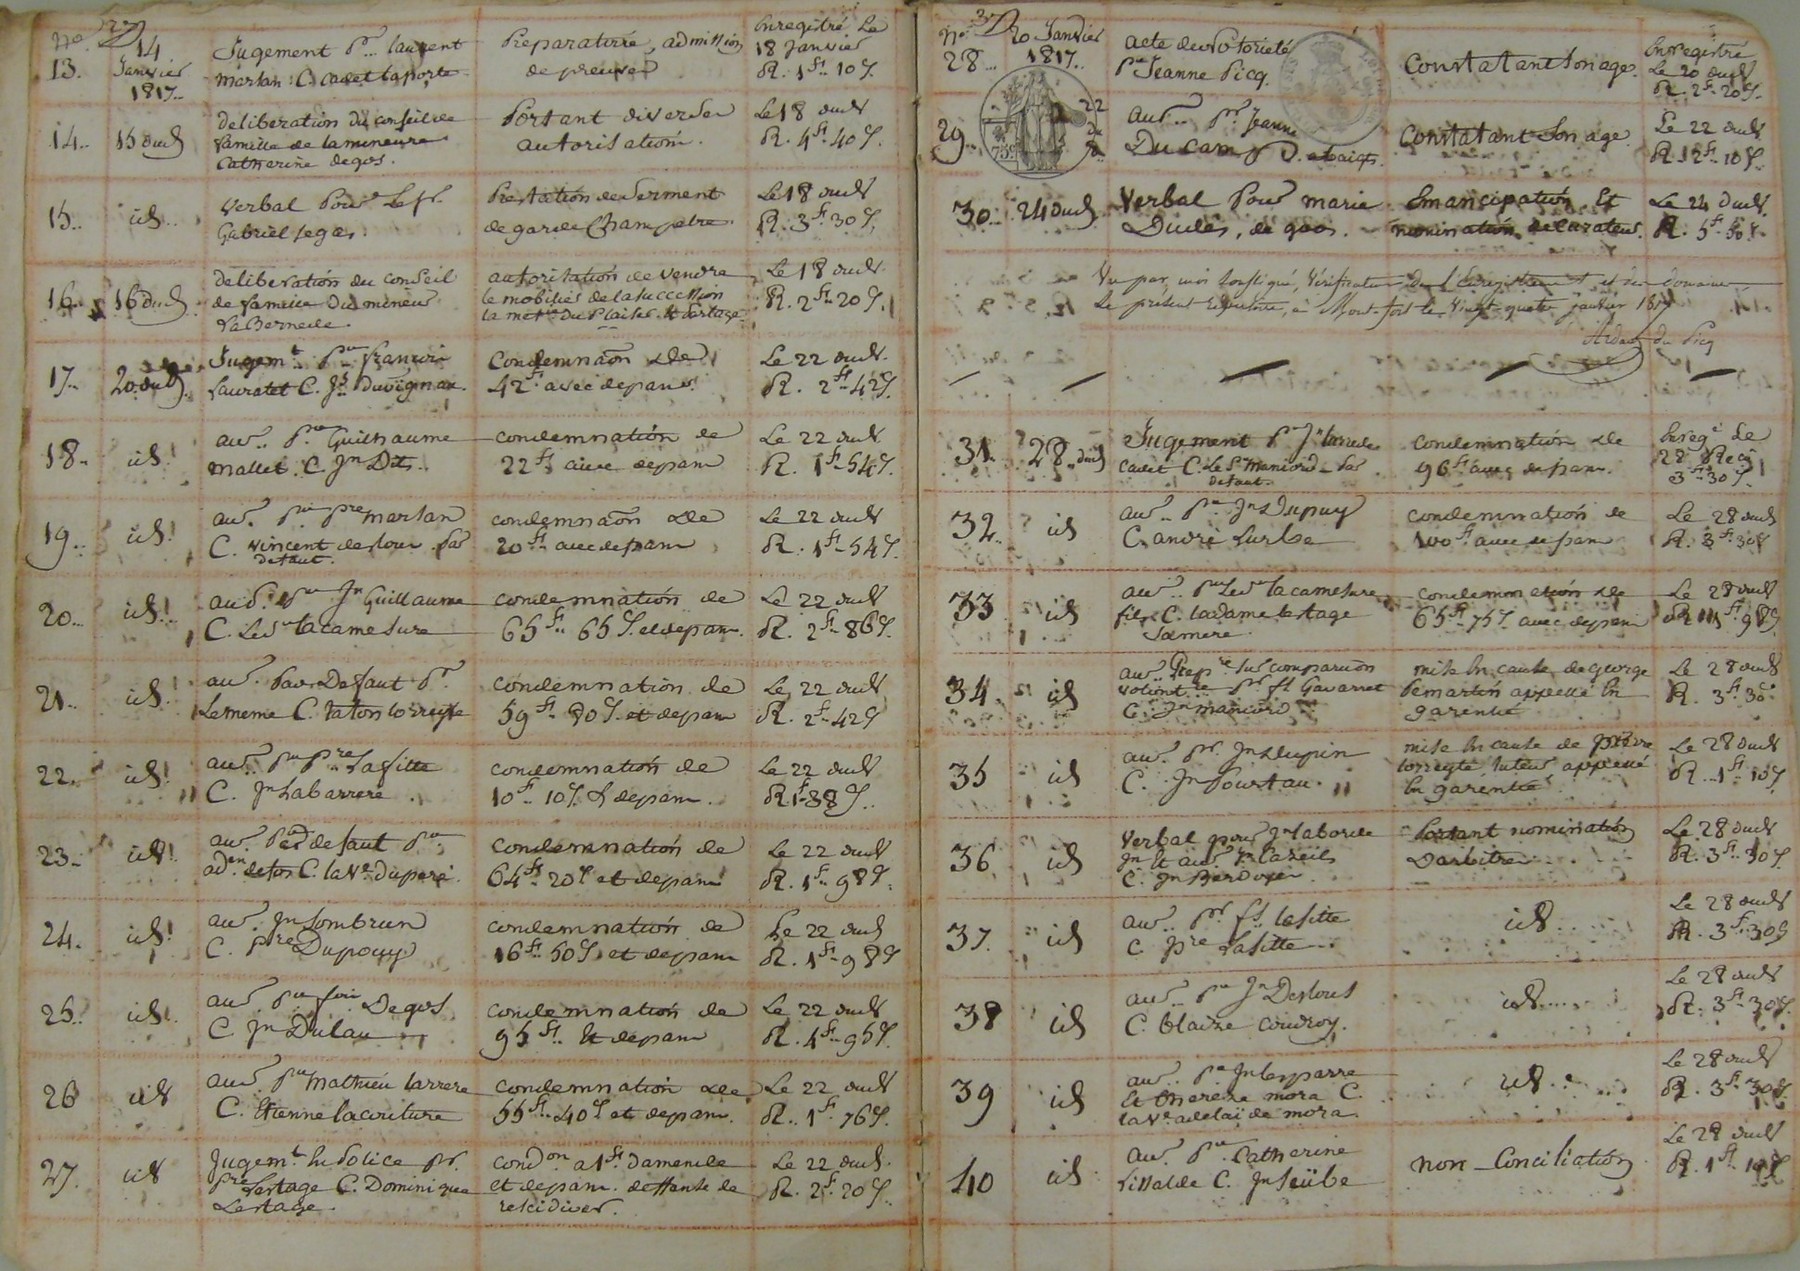 No
13.
14
Janvier
1817
Jugement Pr. laurent
Marsan C. Cadet laporte
Preparatoire, admission
de preuves
Enregistré Le
18 Janvier
R. 1ff 10 c.
14.
15 dud
deliberation du conseil de
famille de la mineure
Catherine degos.
Portant diverses
autorisation
Le 18 dud
R. 4ff 40 c.
15.
id
Verbal Pour Le Sr.
Gabriel Segas
Prestation de Serment
de garde Champetre
Le 18 dud
R. 3ff 30 c.
16.
16 dud
deliberation du conseil
de famille du mineur
autorisation de vendre
le mobilier de la succession
Le 18 dud
R. 2ff 20 c.
17.
20 dud
Jugemt. Pr. françois
Lauratet C. Js. Duvignau
Condemnaõn de
42ff avec depans
Le 22 dud
R. 2ff 42 c.
18.
id
autre Pr. Guilhaume
Mallet C. Jn
condemnation de
22ff avec depans
Le 22 dud
R. 1ff 54 c.
19.
id
autre Pr. pre marsan
C. Vincent deslous Par
defaut.
condemnaõn de
20ff avec depans
Le 22 dud
R. 1ff 54 c.
20.
id
autre Pr. Jn Guillaume
C. Lacamesure
condemnation de
65ff 65 c. et depans
Le 22 dud
R. 2ff 86 c.
21.
id
autre Par Defaut Pr.
Le meme C. laton torreyte
condemnation de
59ff 80 c. et depans
Le 22 dud
R. 2ff 42 c.
22.
id
autre Pr. Pre Lafitte
C. Jn Labarrere
condemnation de
10ff 10 c. & depans
Le 22 dud
R. 1ff 38 c.
23.
id
autre Par defaut Pr.
C. la Ve. Duperé
condemnation de
64ff 20 c. et depans
Le 22 dud
R. 1ff 98 c.
24.
id
autre Jn Sombrun
C. Pre Dupouy
condemnation de
16ff 50 c. et depans
Le 22 dud
R. 1ff 98 c.
25.
id
autre Pr. Degos
C. Jn Dulau
condemnation de
95ff & depans
Le 22 dud
R. 4ff 95 c.
26
id
autre Pr. Mathieu larrere
C. Etienne Lacouture
condemnation de
55ff 40 c. et depans
Le 22 dud
R. 1ff 76 c.
27.
id
Jugemt. En Police Pr.
Pre Lestage C. Dominique
Lestage
condon. a 1ff Damende
et depans deffense de
rescidiver.
Le 22 dud
R. 2ff 20 c.
No.
28.
20 Janvier
1817.
acte de Notorieté
Pr. Jeanne Picq.
Constatant son age.
Enregistré
Le 20 dud
R. 2ff 20 c.
29.
22
75c.
autre Pr. Jeanne
Ducamp
Constatant son age.
Le 22 dud
R. 2ff 10 c.
30.
24 dud
Verbal Pour marie
Duclés, de goos.
Emancipation Et
nomination de Curateur.
Le 24 dud
R. 5ff 50 c.
Vu par moi soussigné, Vérificateur de l'Enregistrement et des Domaines
Le présent Répertoire, à Mont-fort le Vingt-quatre janvier 1817
Ardant du Picq
31.
28 dud
Jugement Pr. Jn
cadet C. Le Sr. Manciord Par
defaut.
condemnation de
96ff avec depans.
Enregé Le
28
3ff 30 c.
32.
id
autre Pr. Jn Dupuy
C. andré Lurbe
condemnation de
100ff avec depans
Le 28 dud
R. 3ff 30 c.
33
id
autre Pr. Lacamesure
fils C. la dame lestage
Sa mere.
condemnation de
65ff 75 c. avec depans
Le 28 dud
98 c.
34.
id
autre comparuon
volont. Pr. fs Gavarret
C. Jn manciord
mise En cause de george
Demarten appellé En
garentie
Le 28 dud
R. 3ff 30 c.
35
id
autre Pr. Jn Dupin
C. Jn Pourtau
mise En cause de Pierre
torreyte tuteur appellé
En garentie
Le 28 dud
R. 1ff 10 c.
36
id
Verbal pour Jn laborde
C. Jn Berdoyer
Portant nomination
Darbitres
Le 28 dud
R. 3ff 30 c.
37.
id
autre Pr. fs. lafitte
C. Pre Lafitte
id
Le 28 dud
R. 3ff 30 c.
38
id
autre Pr. Jn Deslous
C. blaize coudroy.
id
Le 28 dud
R. 3ff 30 c.
39
id
autre Pr. Jn lesparre
Et therese mora C.
la Ve. adelaïde mora.
id
Le 28 dud
R. 3ff 30 c.
40
id
autre Pr. Catherine
Lissalde C. Jn Seübe
non-Conciliation
Le 28 dud
R. 1ff 10 c.